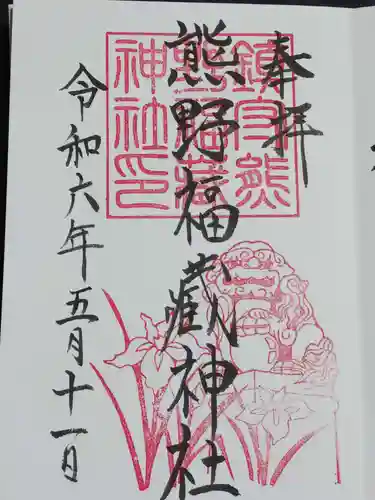 奉拝
熊野福蔵神社
鎮守熊
野福蔵
神社印
令和六年五月十一日